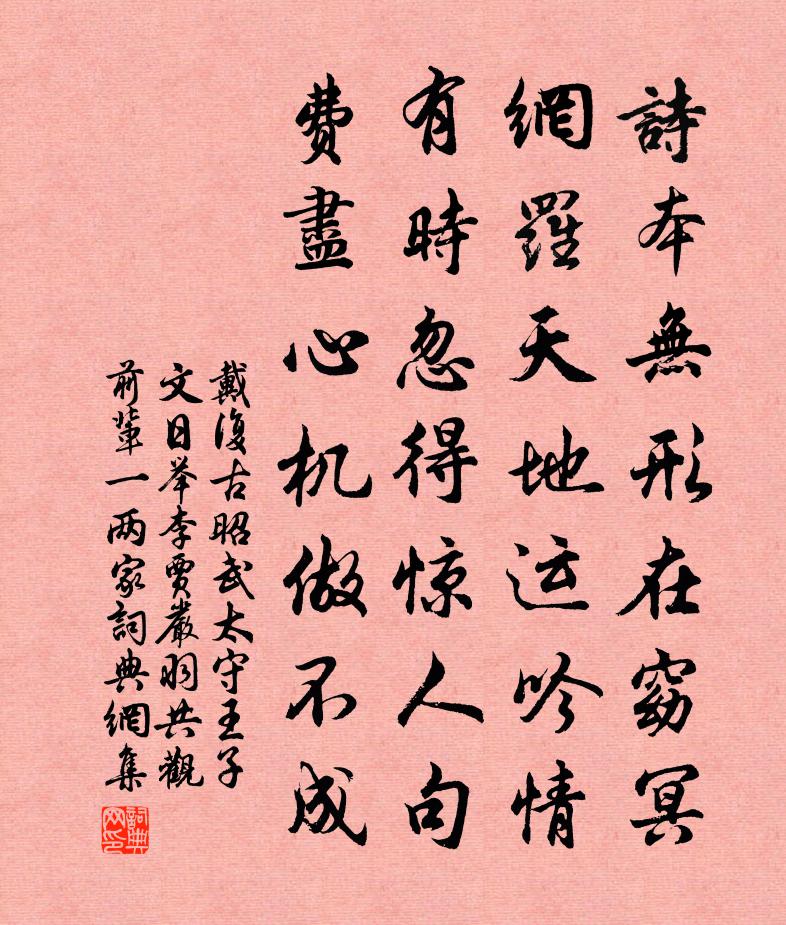 詩本無形在窈冥
網羅天地运吟情
有時忽得惊人句
费盡心机做不成
戴復古昭武太守王子
文日举李贾嚴羽共觀
前輩一两家詞典網集
詞典网印